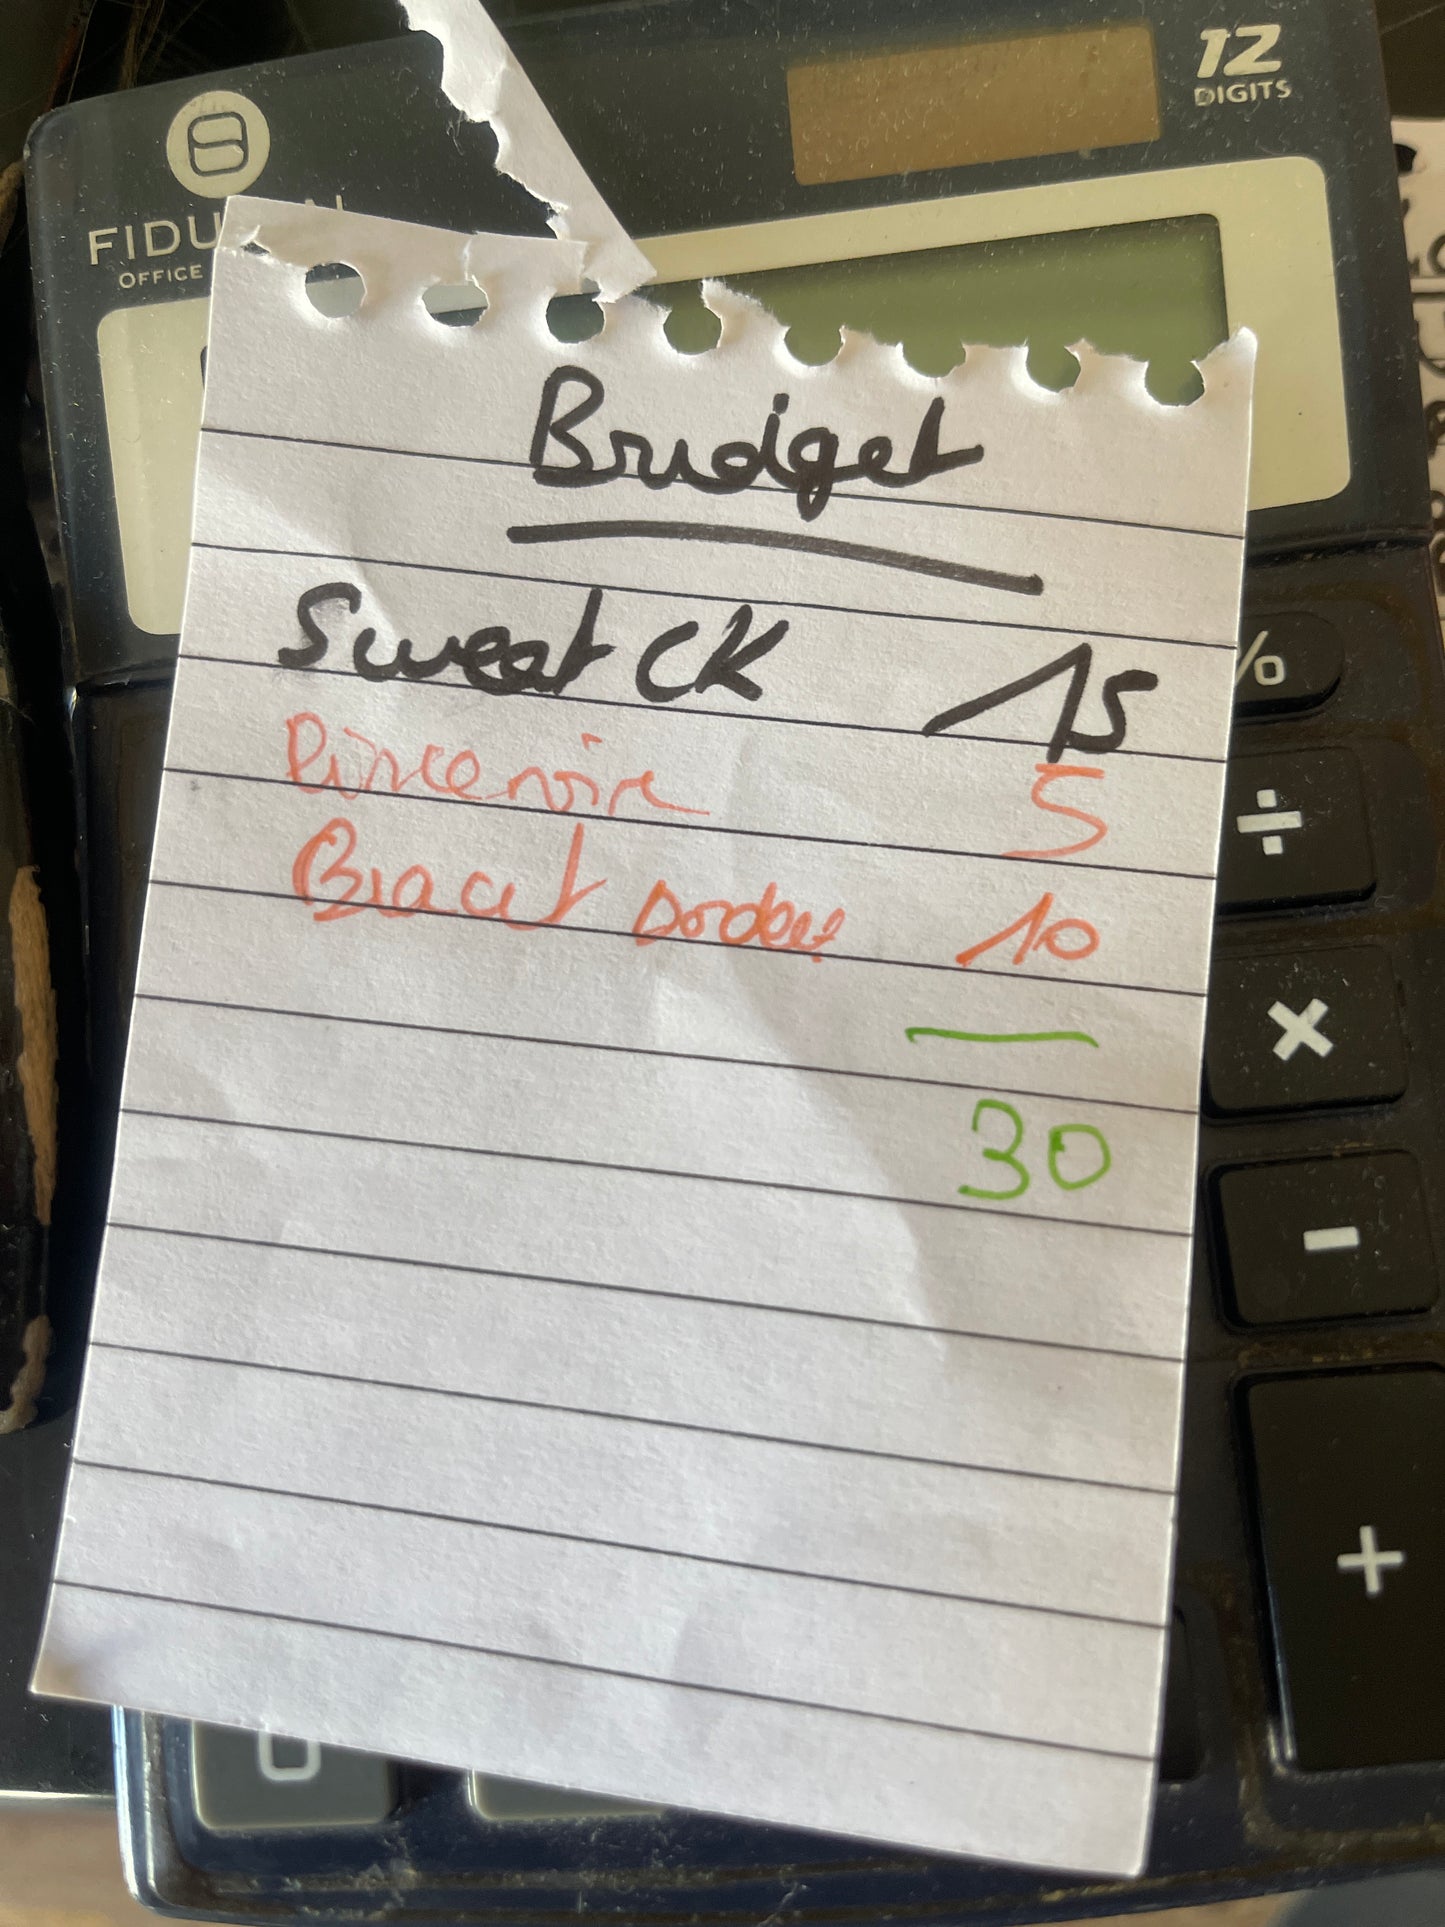 12
DIGITS
FIDU
OFFICE
Budget
Sweat CK 15
Pince noire 5
Bracelet 10
30
%
÷
×
-
+